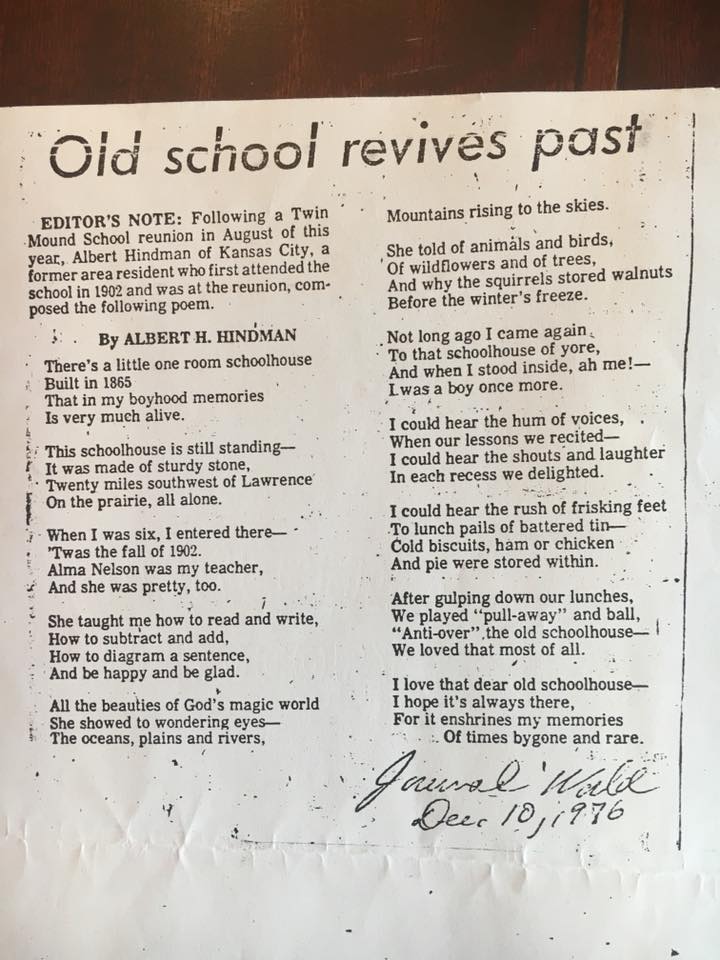 Old school revives past
EDITOR'S NOTE: Following a Twin
Mound School reunion in August of this
year, Albert Hindman of Kansas City, a
former area resident who first attended the
school in 1902 and was at the reunion, com-
posed the following poem.
By ALBERT H. HINDMAN
There's a little one room schoolhouse
Built in 1865
That in my boyhood memories
Is very much alive.
This schoolhouse is still standing—
It was made of sturdy stone,
Twenty miles southwest of Lawrence
On the prairie, all alone.
When I was six, I entered there—
'Twas the fall of 1902.
Alma Nelson was my teacher,
And she was pretty, too.
She taught me how to read and write,
How to subtract and add,
How to diagram a sentence,
And be happy and be glad.
All the beauties of God's magic world
She showed to wondering eyes—
The oceans, plains and rivers,
Mountains rising to the skies.
She told of animals and birds,
Of wildflowers and of trees,
And why the squirrels stored walnuts
Before the winter's freeze.
Not long ago I came again
To that schoolhouse of yore,
And when I stood inside, ah me!—
I was a boy once more.
I could hear the hum of voices,
When our lessons we recited—
I could hear the shouts and laughter
In each recess we delighted.
I could hear the rush of frisking feet
To lunch pails of battered tin—
Cold biscuits, ham or chicken
And pie were stored within.
After gulping down our lunches,
We played "pull-away" and ball,
"Anti-over" the old schoolhouse—
We loved that most of all.
I love that dear old schoolhouse—
I hope it's always there,
For it enshrines my memories
Of times bygone and rare.
Journal World
Dec. 10, 1976